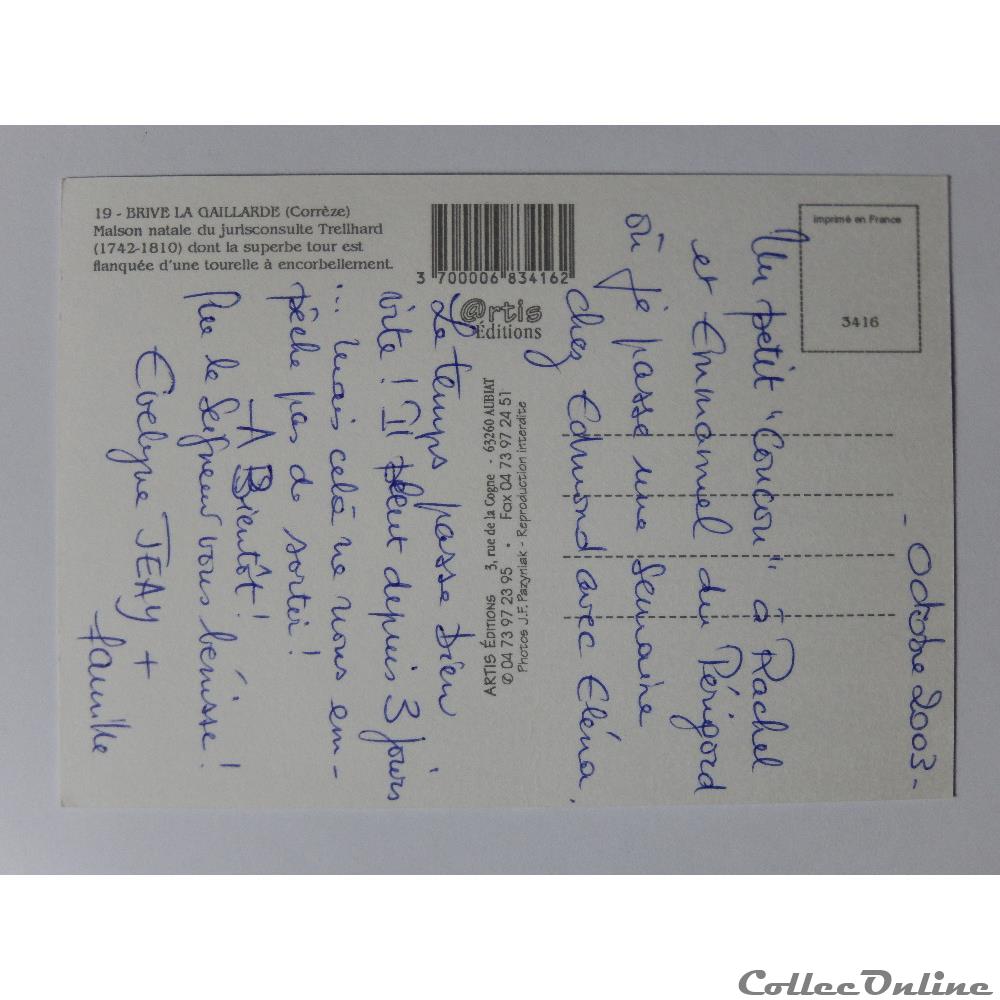 19 - BRIVE LA GAILLARDE (Corrèze)
Maison natale du jurisconsulte Treilhard
(1742-1810) dont la superbe tour est
flanquée d'une tourelle à encorbellement.
3 700006 834162
@rtis
Éditions
ARTIS ÉDITIONS 3, rue de la Cogne - 63260 AUBIAT
✆ 04 73 97 23 95 • Fax 04 73 97 24 51
Photos J.F. Pazyniak - Reproduction interdite
Imprimé en France
3416
- Octobre 2003 -
Un petit "Coucou" à Rachel
et Emmanuel du Périgord
où je passe une semaine
chez Edmond avec Eléna.
Le temps passe bien
vite ! Il pleut depuis 3 jours
... mais celà ne nous em-
pêche pas de sortir !
A Bientôt !
Que le Seigneur vous bénisse !
Evelyne JEAY +
famille
CollecOnline